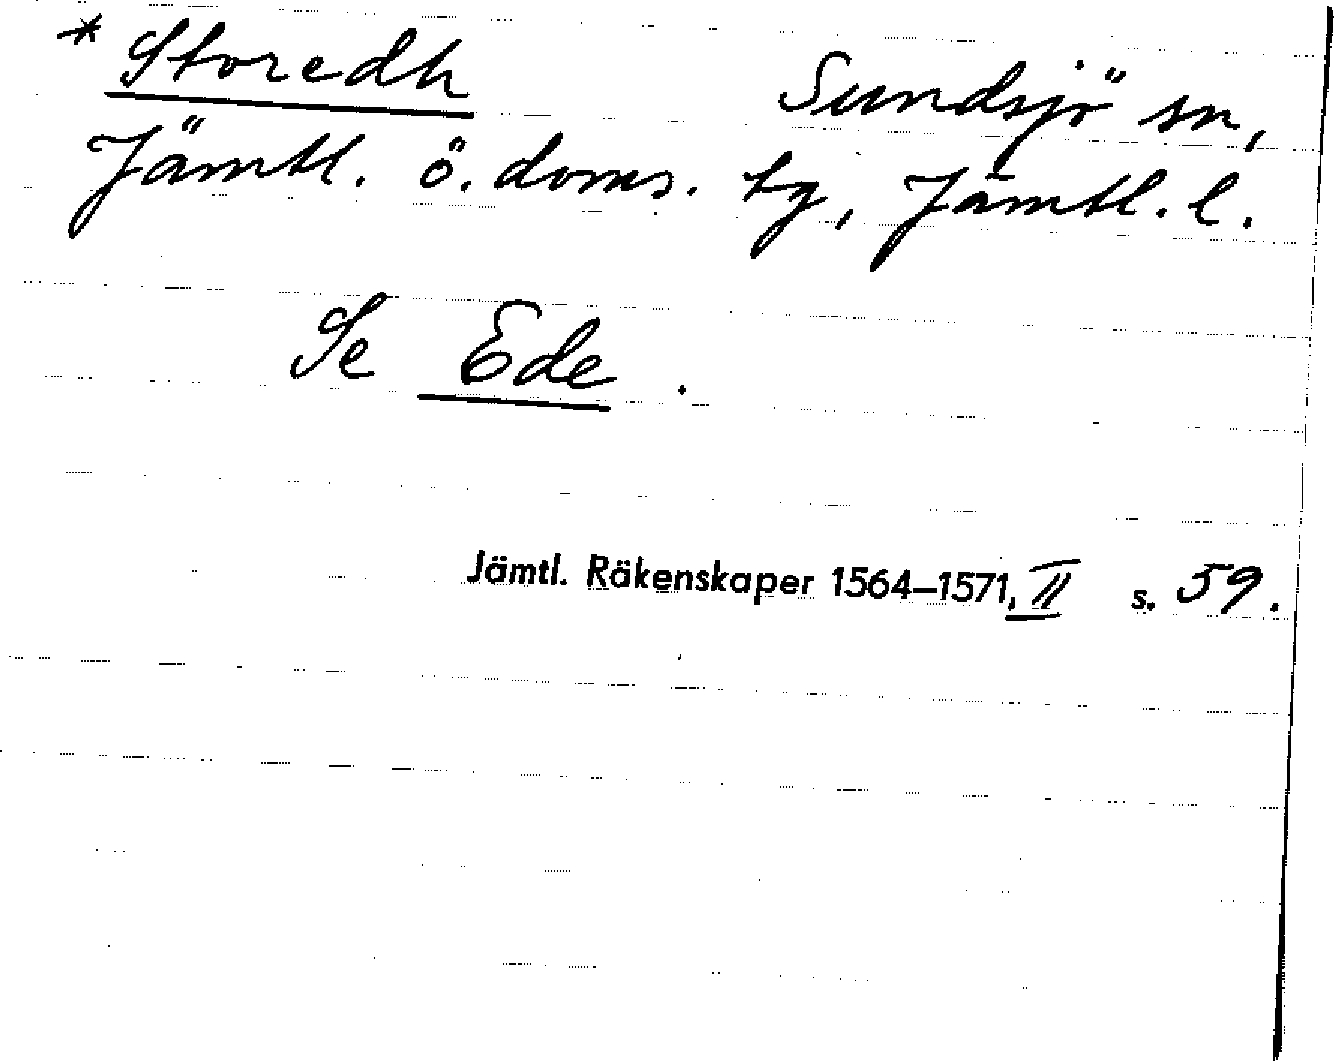 * Storedh Sundsjö sn,
Jämtl. ö. doms. tg, Jämtl. l.
Se Ede.
Jämtl. Räkenskaper 1564–1571, II s. 59.